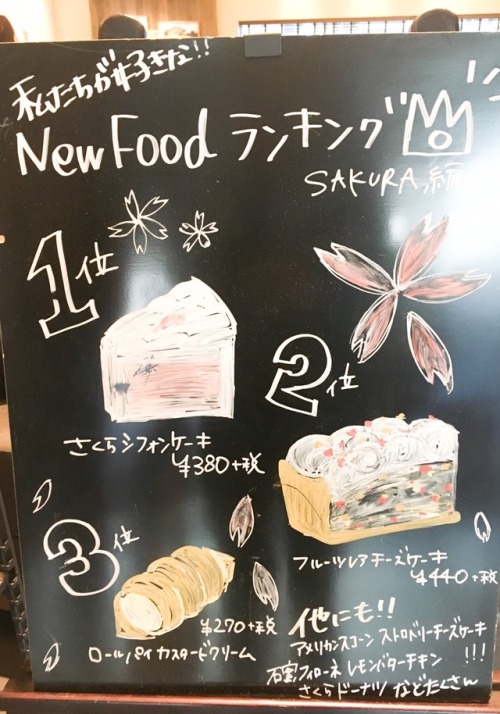 私たちが好きな!!
New Food ランキング
SAKURA 編
1位
さくらシフォンケーキ
¥380+税
2位
フルーツレアチーズケーキ
¥440+税
3位
¥270+税
ロールパイ カスタードクリーム
他にも!!
アメリカンスコーン ストロベリーチーズケーキ
石窯フィローネ レモンバターチキン !!!
さくらドーナツ などたくさん